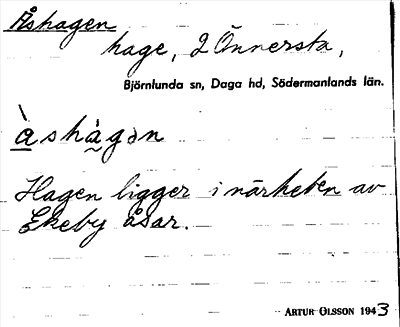 Åshagen
hage, 2 Önnersta,
Björnlunda sn, Daga hd, Södermanlands län.
às̀hà̰gən
Hagen ligger i närheten av
Ekeby åsar.
ARTUR OLSSON 1943